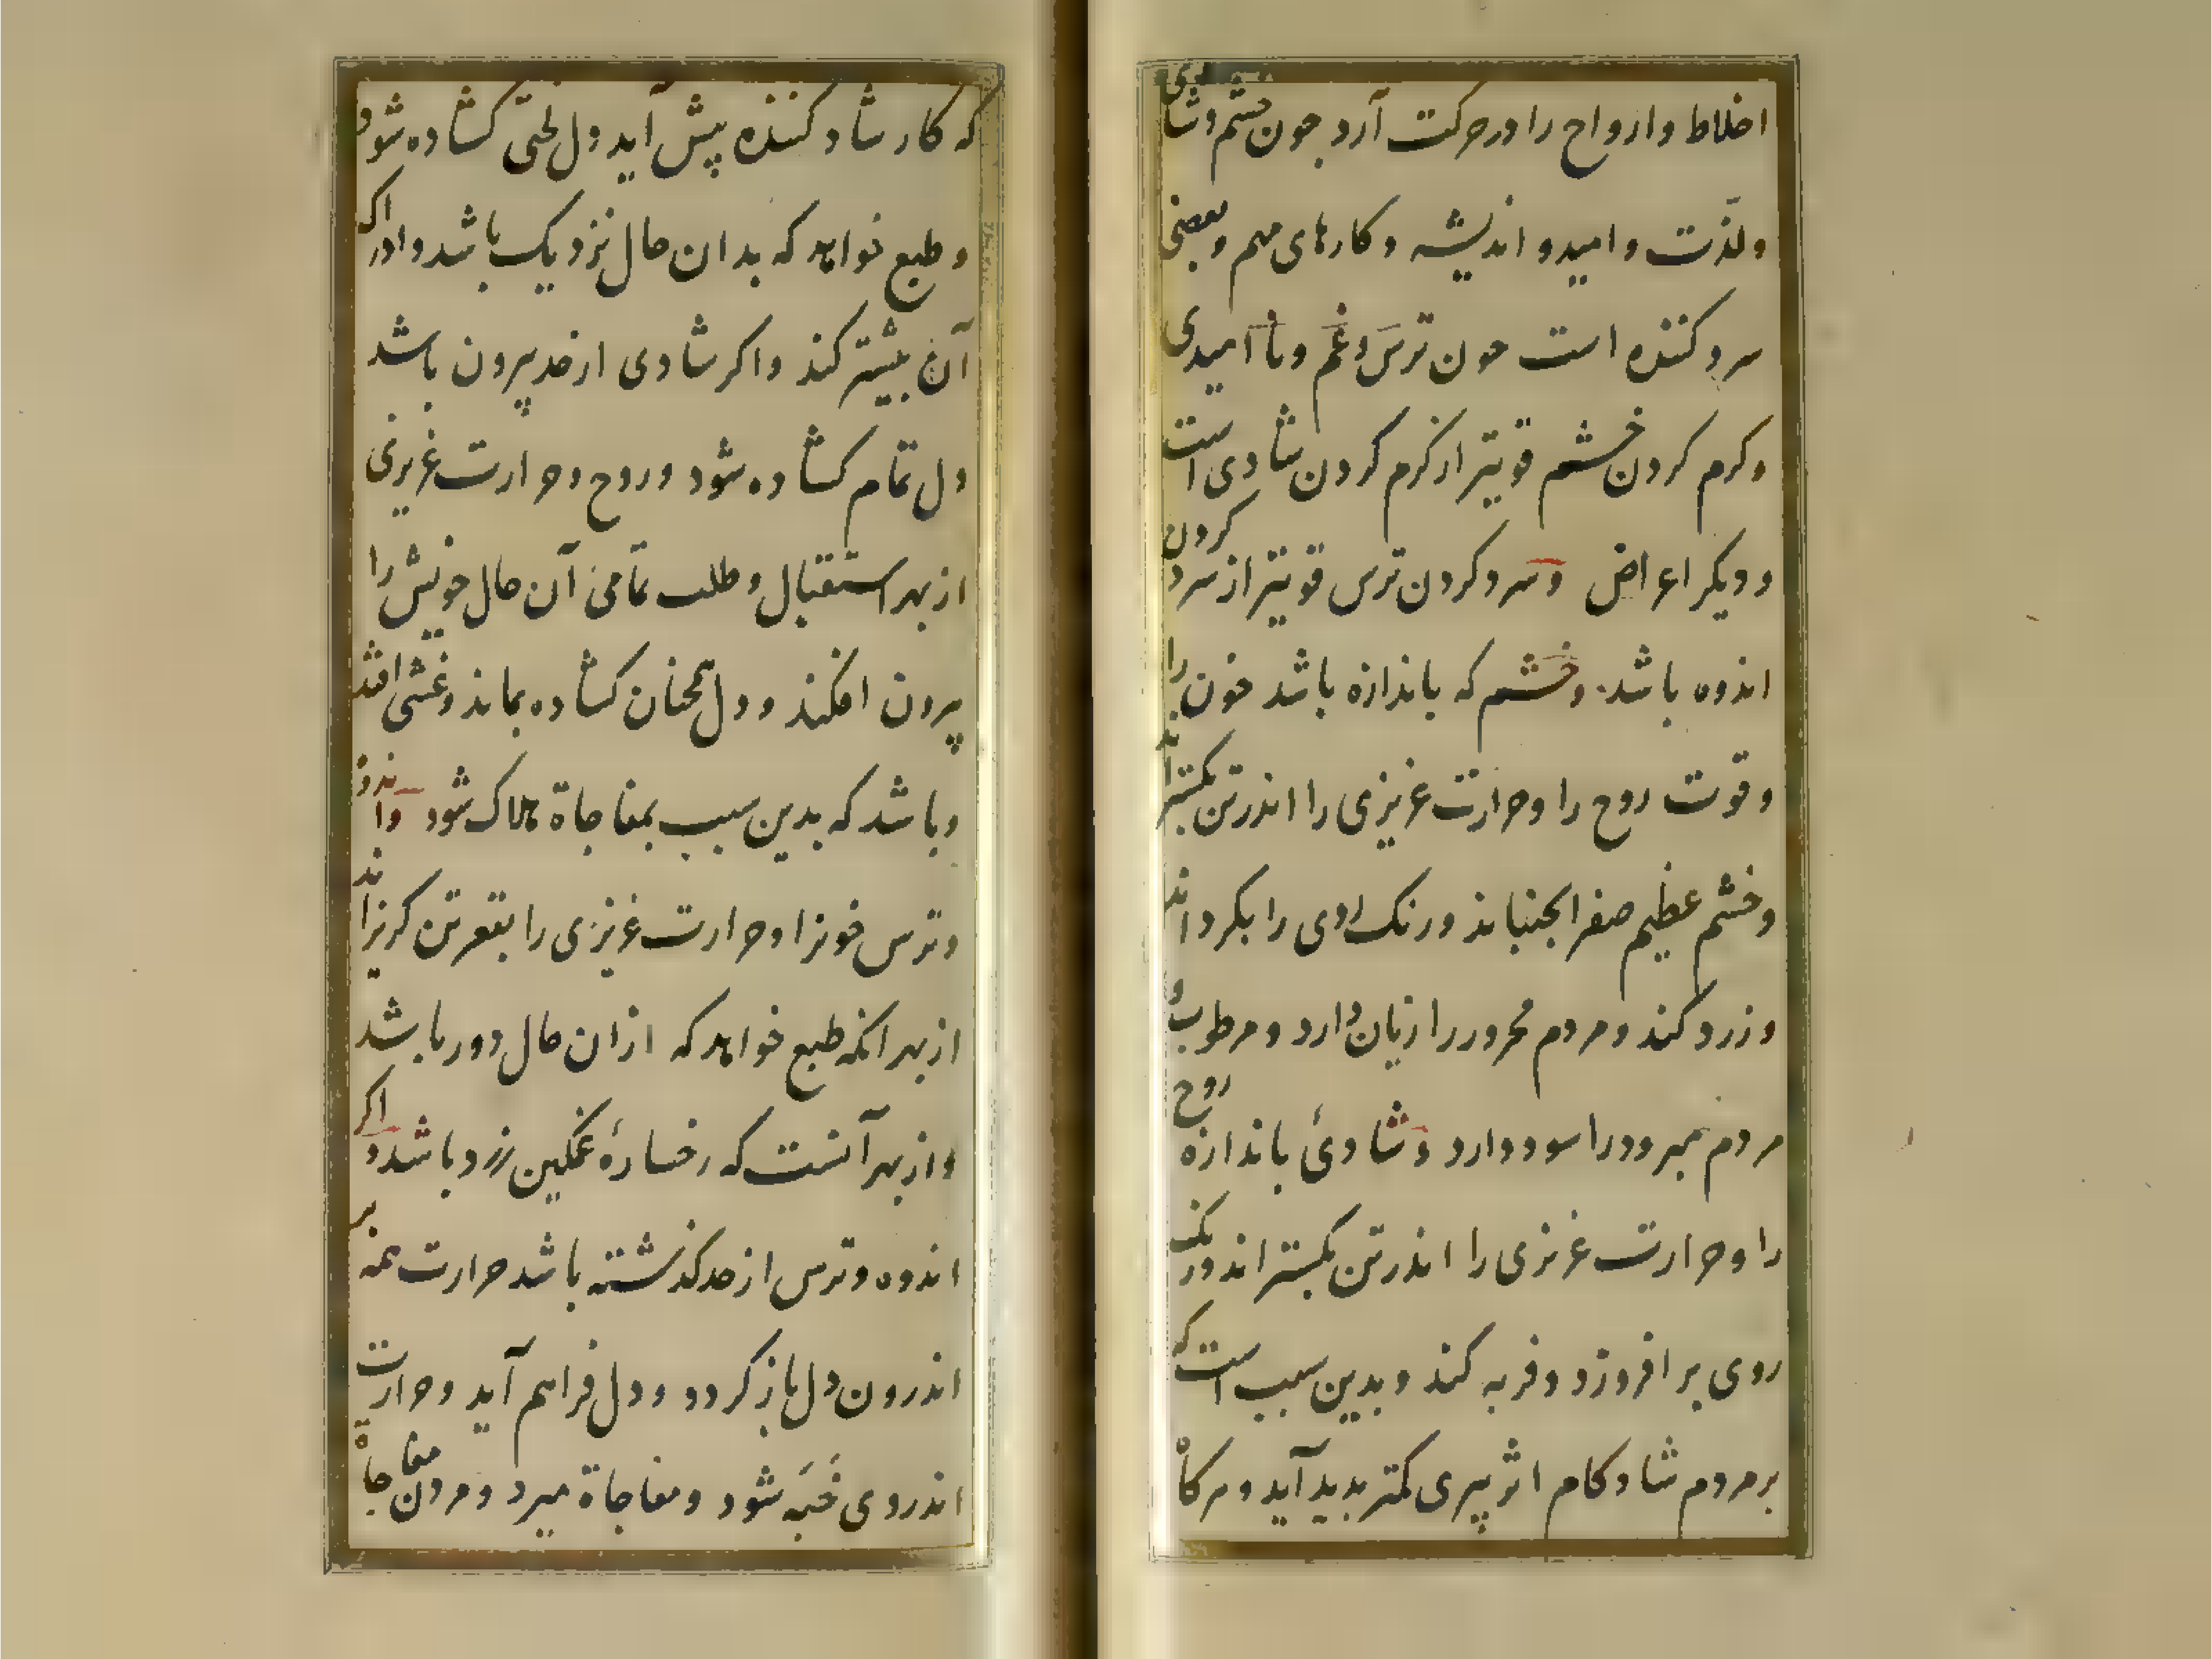 اخلاط و ارواح را در حرکت آرد جون خشم و شادی
و لذّت و امید و اندیشه و کارهای مهم و بعضی
سرد کننده است جون ترس و غم و نا امیدی
و کرم کردن خشم قویتر از کرم کردن شادی است
و دیکر اعراض و سرد کردن ترس قویتر از سرد کردن
اندوه باشد. و خشم که باندازه باشد خون را
و قوت روح را و حرارت غریزی را اندر تن بکستراند
و خشم عظیم صفرا بجنباند و رنک روی را بکرداند
و زرد کند و مردم محرور را زیان دارد و مرطوب و
مردم مبرود را سود دارد و شادئ باندازه روح
را و حرارت غریزی را اندر تن بکستراند و رنک
روی بر افروزد و فربه کند و بدین سبب است که
بر مردم شادکام اثر پیری کمتر بدید آید و هرکاه
که کار شاد کننده پیش آید دل لختی کشاده شود
و طبع خواهد که بدان حال نزدیک باشد و ادراک
آن بیشتر کند و اکر شادی از حد بیرون باشد
دل تمام کشاده شود و روح و حرارت غریزی
از بهر استقبال و طلب تمامی آن حال خویش را
بیرون افکند و دل همجنان کشاده بماند و غشی افتد
و باشد که بدین سبب بمفاجاة هلاک شود و اندوه
و ترس خونرا و حرارت غریزی را بقعر تن کریزاند
از بهر انکه طبع خواهد که ازان حال دور باشد
و از بهر آنست که رخسارهٔ غمکین زرد باشد و اکر
اندوه و ترس از حد کذشته باشد حرارت همه بر
اندرون دل باز کردد و دل فراهم آید و حرارت
اندر وی خَبَه شود و مفاجاة میرد و مردن مفاجاة